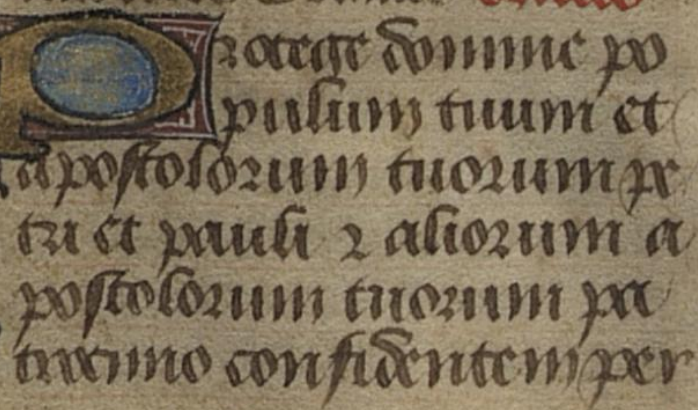 Protege domine po
pulum tuum et
apostolorum tuorum pe
tri et pauli ⁊ aliorum a
postolorum tuorum pa
trocinio confidentem per